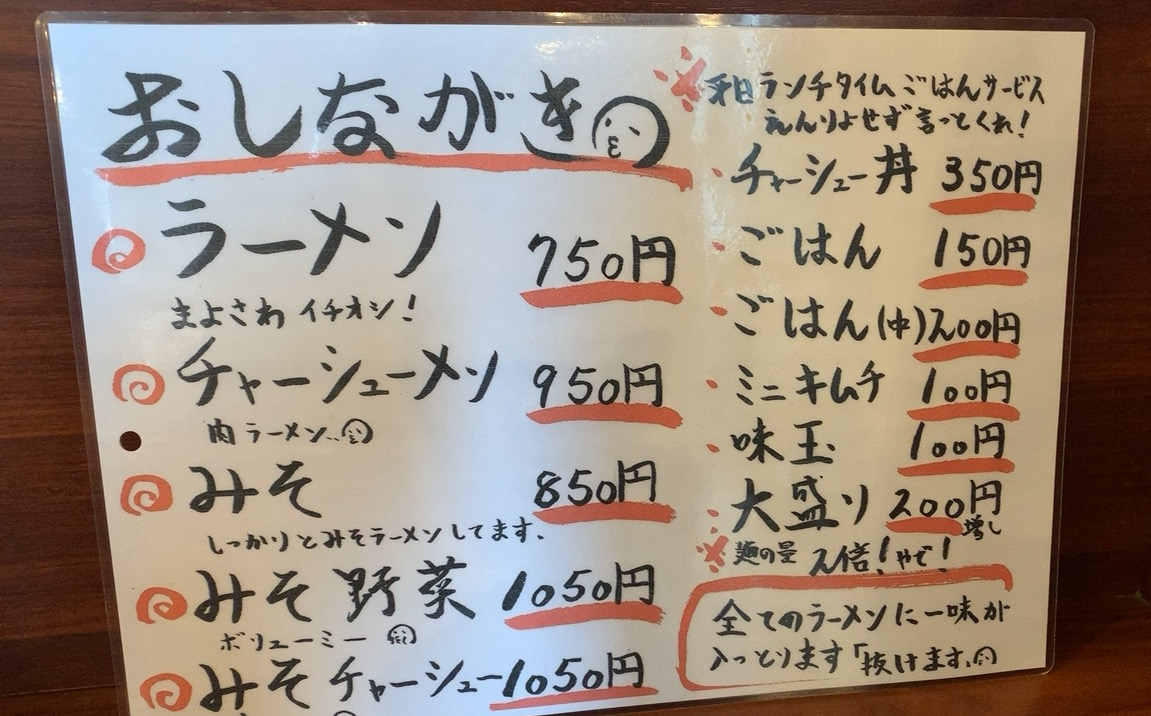 おしながき
ラーメン 750円
まよさわ イチオシ!
チャーシューメン 950円
肉ラーメン...
みそ 850円
しっかりとみそラーメンしてます.
みそ野菜 1050円
ボリューミー
みそチャーシュー 1050円
※平日ランチタイムごはんサービス
えんりょせず言っとくれ!
・チャーシュー丼 350円
・ごはん 150円
・ごはん(中) 200円
・ミニキムチ 100円
・味玉 100円
・大盛り 200円増し
※麺の量 2倍!やで!
全てのラーメンに一味が
入っとります「抜けます.